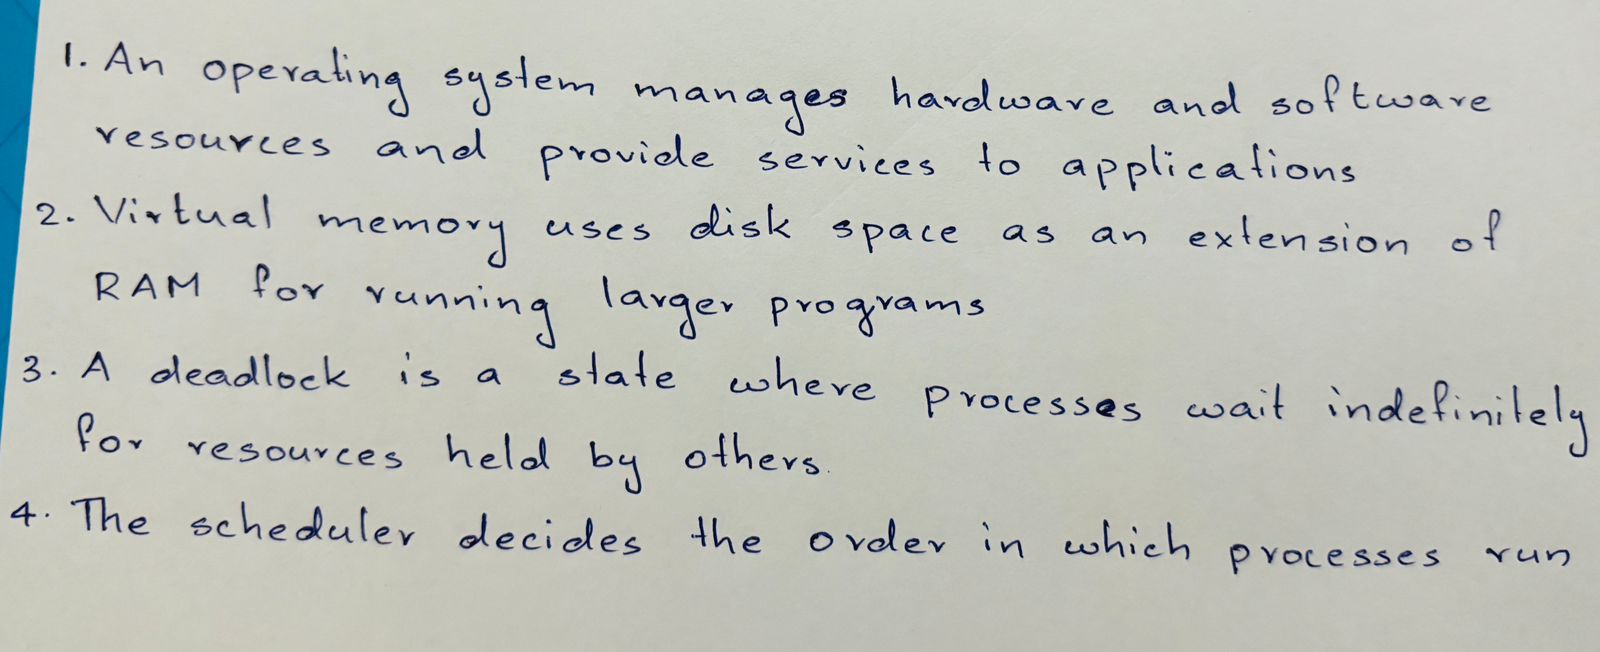 1. An operating system manages hardware and software
resources and provide services to applications
2. Virtual memory uses disk space as an extension of
RAM for running larger programs
3. A deadlock is a state where processes wait indefinitely
for resources held by others.
4. The scheduler decides the order in which processes run